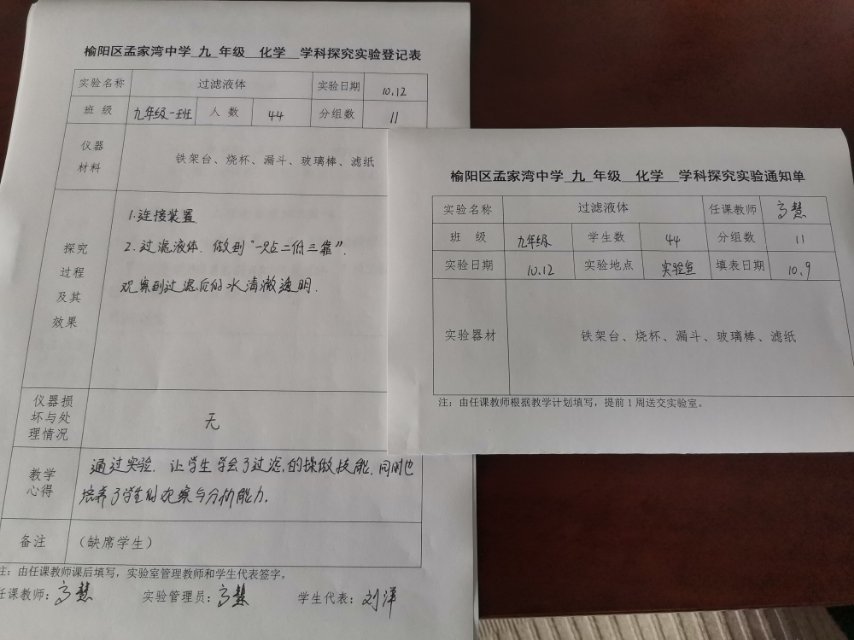 榆阳区孟家湾中学 九 年级 化学 学科探究实验登记表
实验名称 过滤液体 实验日期 10.12
班 级 九年级一班 人 数 44 分组数 11
仪器材料 铁架台、烧杯、漏斗、玻璃棒、滤纸
探究过程及其效果
1.连接装置
2.过滤液体.做到"一贴二低三靠".
观察到过滤后的水清澈透明.
仪器损坏与处理情况 无
教学心得 通过实验.让学生学会了过滤的操做技能.同时也
培养了学生的观察与分析能力.
备注 (缺席学生)
注：由任课教师课后填写，实验室管理教师和学生代表签字。
任课教师：高慧 实验管理员：高慧 学生代表：刘洋
榆阳区孟家湾中学 九 年级 化学 学科探究实验通知单
实验名称 过滤液体 任课教师 高慧
班 级 九年级 学生数 44 分组数 11
实验日期 10.12 实验地点 实验室 填表日期 10.9
实验器材 铁架台、烧杯、漏斗、玻璃棒、滤纸
注：由任课教师根据教学计划填写，提前1周送交实验室。